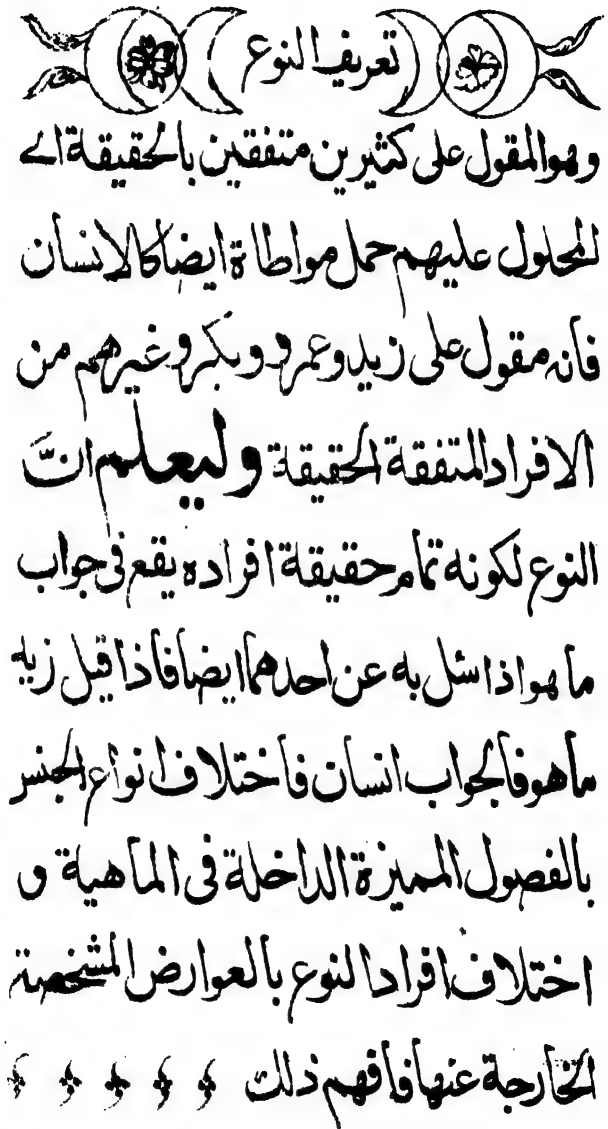 تعريف النوع
وهو المقول على كثيرين متفقين بالحقيقة اے
المحلول عليهم حمل مواطاة ايضا كالانسان
فانه مقول على زيد وعمرو وبكر وغيرهم من
الافراد المتفقة الحقيقة وليعلم انَّ
النوع لكونه تمام حقيقة افراده يقع فى جواب
ما هو اذا سئل به عن احدهما ايضا فاذا قيل زيد
ما هو فالجواب انسان فاختلاف انواع الجنس
بالفصول المميزة الداخلة فى الماهية و
اختلاف افراد النوع بالعوارض المشخصة
الخارجة عنها فافهم ذلك